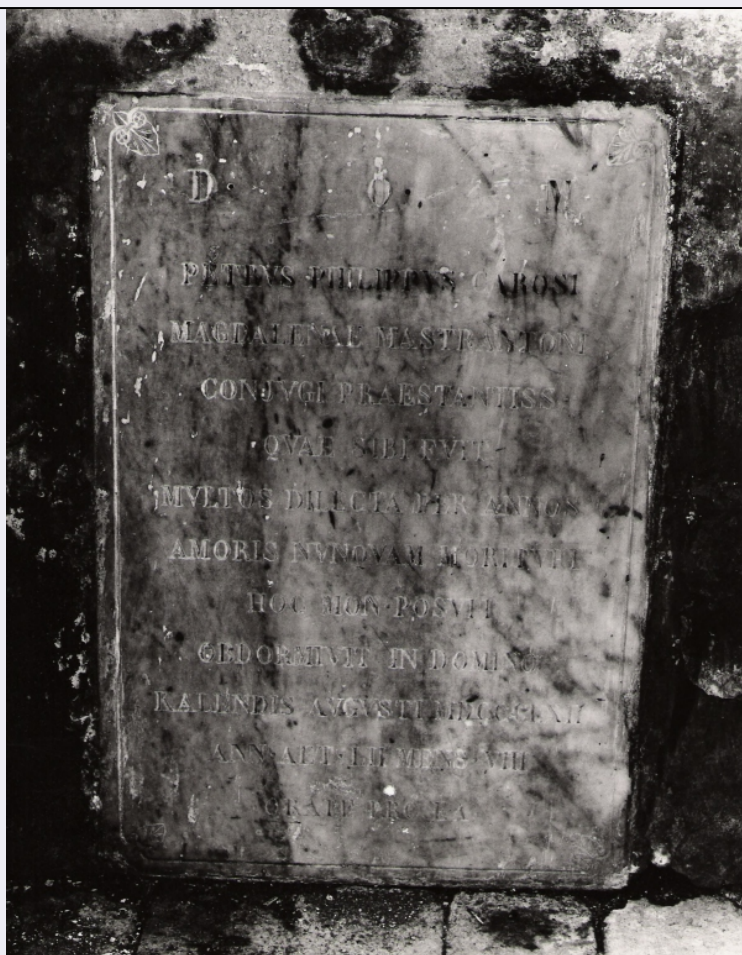 D O M
PETRVS PHILIPPVS CAROSI
MAGDALENAE MASTRANTONI
CONJVGI PRAESTANTISS
QVAE SIBI FVIT
MVLTOS DILECTA PER ANNOS
AMORIS NVNQVAM MORITVRI
HOC MON POSVIT
OBDORMIVIT IN DOMINO
KALENDIS AVGVSTI MDCCCLXII
ANN AET LII MENS VIII
ORATE PRO EA